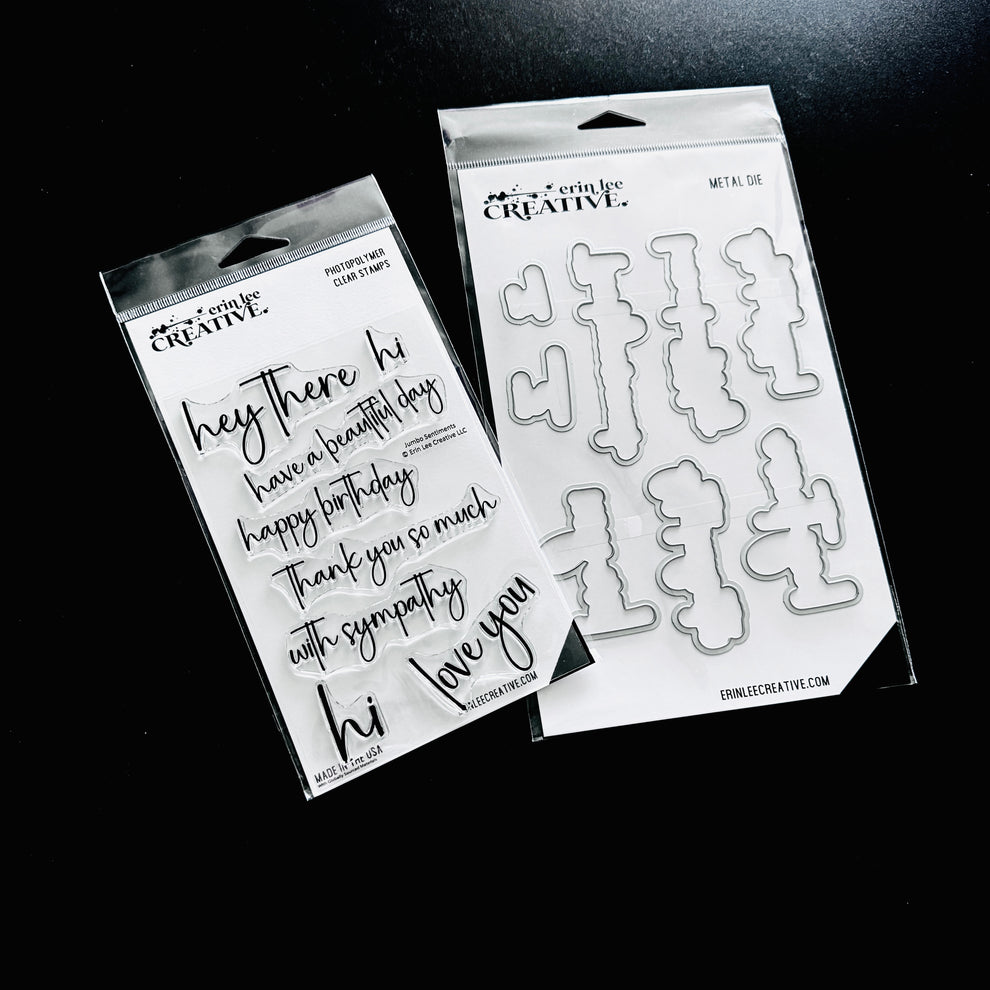 erin lee
CREATIVE.
PHOTOPOLYMER
CLEAR STAMPS
hi
hey there
have a beautiful day
Jumbo Sentiments
© Erin Lee Creative LLC
happy birthday
thank you so much
with sympathy
love you
hi
ERINLEECREATIVE.COM
MADE IN THE USA
With Globally Sourced Materials
erin lee
CREATIVE.
METAL DIE
ERINLEECREATIVE.COM